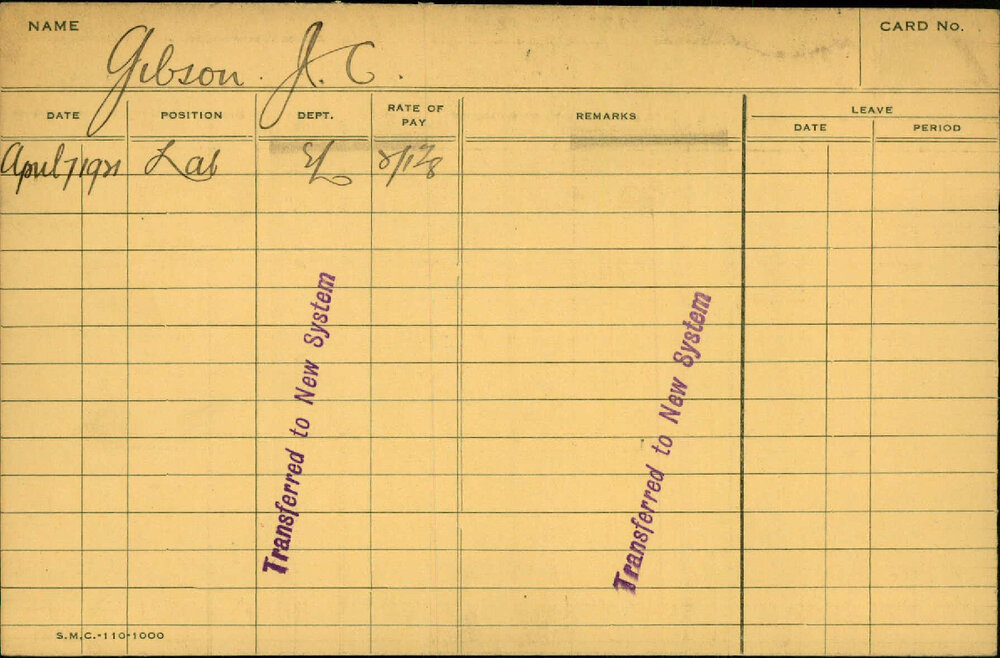 NAME Gibson. J. C. CARD No.
DATE POSITION DEPT. RATE OF PAY REMARKS LEAVE
DATE PERIOD
April 7/1921 Lab EL
Transferred to New System
Transferred to New System
S.M.C.-110-1000